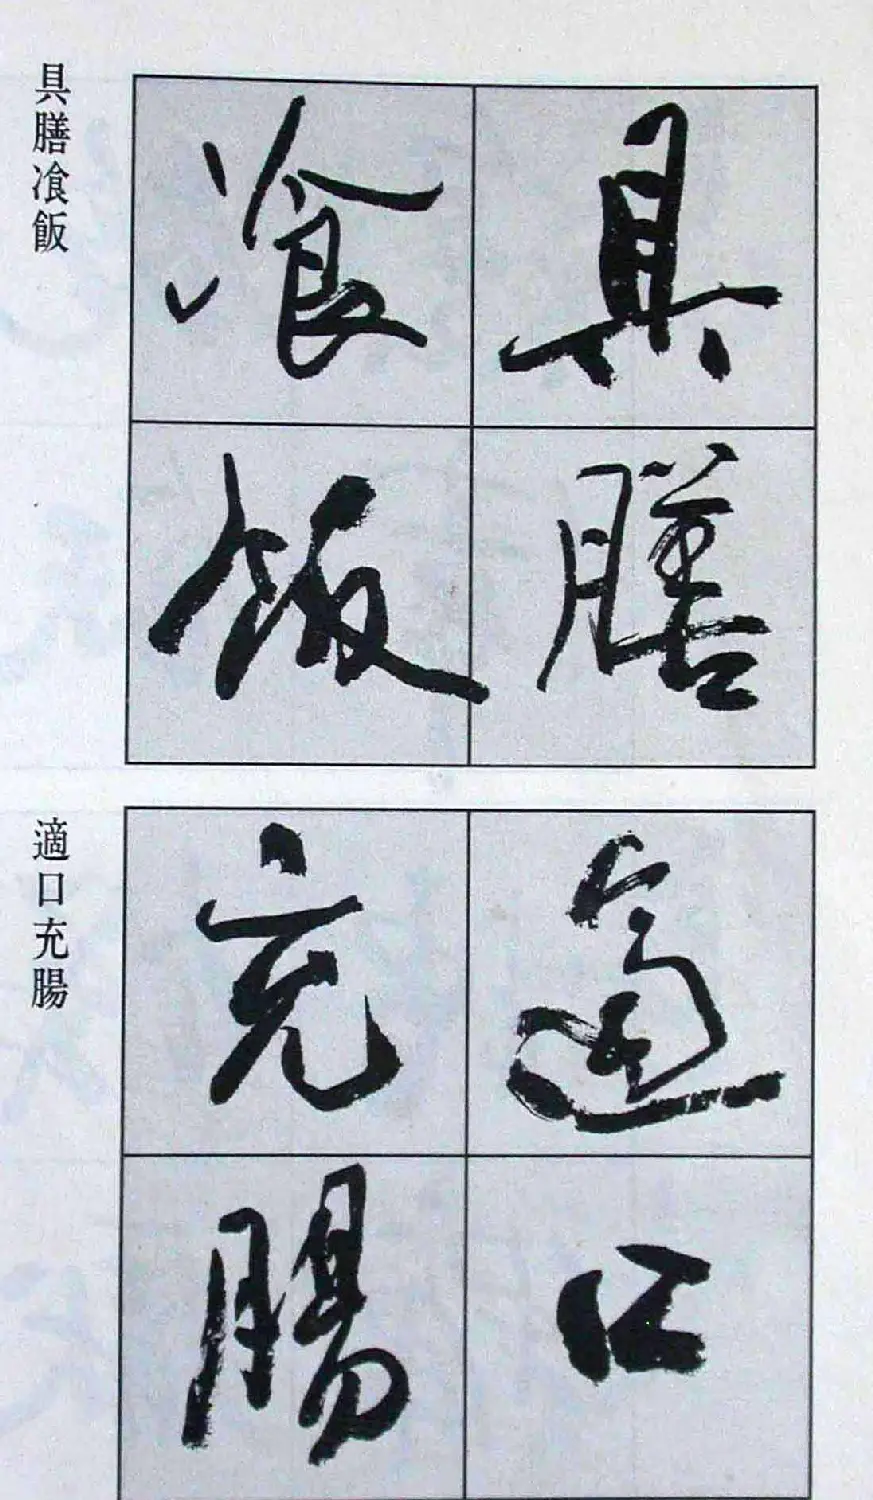 具膳飡飯
具膳
飡飯
適口充腸
適口
充腸